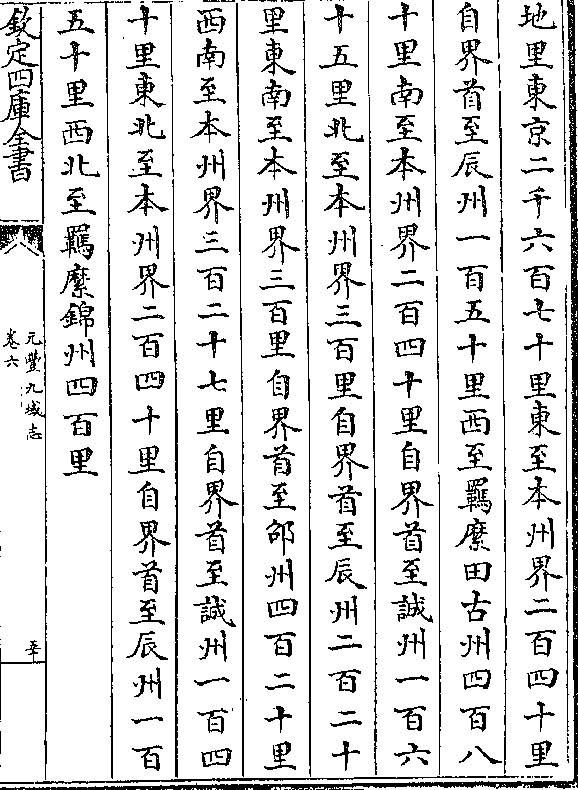 地里東京二千六百七十里東至本州界二百四十里
自界首至辰州一百五十里西至羈縻田古州四百八
十里南至本州界二百四十里自界首至誠州一百六
十五里北至本州界三百里自界首至辰州二百二十
里東南至本州界三百里自界首至邵州四百二十里
西南至本州界三百二十七里自界首至誠州一百四
十里東北至本州界二百四十里自界首至辰州一百
五十里西北至羈縻錦州四百里
欽定四庫全書
元豐九域志
卷六